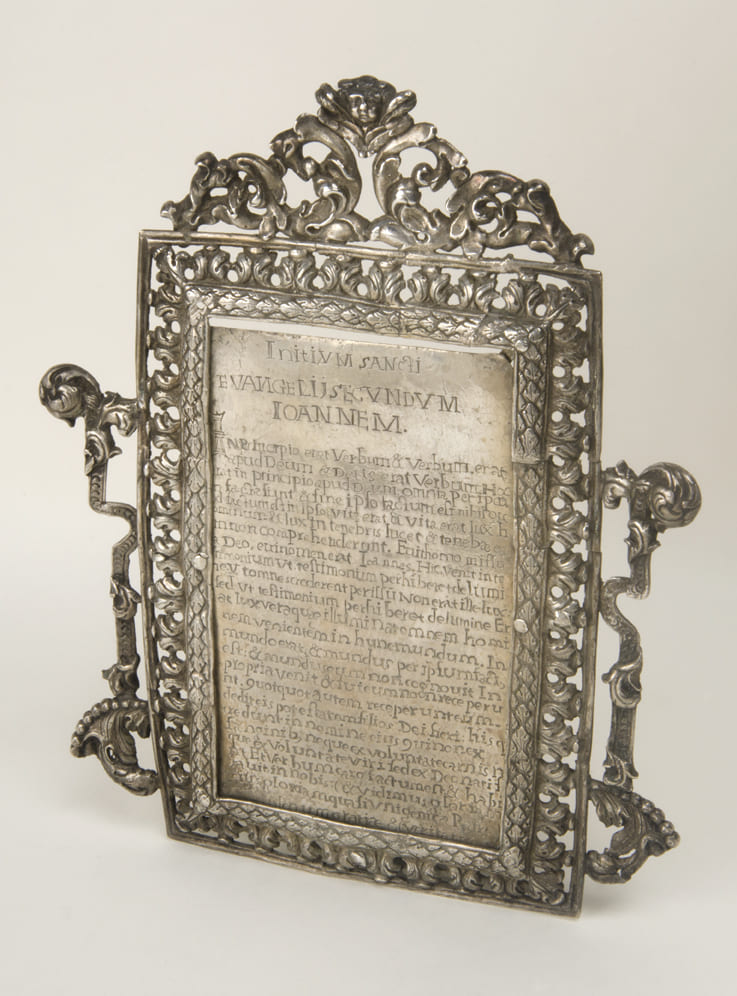 InitiVM SANCti
EVANGELII SECVNDVM
IOANNEM.
IN Principio erat Verbum & Verbum erat
apud Deum & Deus erat Verbum Hoc
erat in principio apud Deum omnia Per ipsu
facta sunt & sine ipso factum est nihil quod
factum est in ipso vita erat & vita erat lux h
ominum & lux in tenebris lucet & tenebræ e
am non comprehenderunt. Fuit homo missu
s a Deo, cui nomen erat Ioannes. Hic venit in te
stimonium Vt testimonium perhiberet de lumi
ne Vt omnes crederent per illu Non erat ille lux
sed Vt testimonium perhiberet de lumine Er
at lux vera quæ illuminat omnem homi
nem venientem in hunc mundum. In
mundo erat, & mundus per ipsum fact,
est & mundus eum non cognouit In
propria venit & sui eum non receperu
nt. quotquot autem receperunt eum
dedit eis potestatem filios Dei fieri. his q
credunt in nomine eius qui non ex
sanguinib, neque ex voluntate carnis n
que ex voluntate viri sed ex Deo nati s
Et Verbum caro factum est & habi
tauit in nobis & vidimus gloria
gloriam quasi vnigeniti